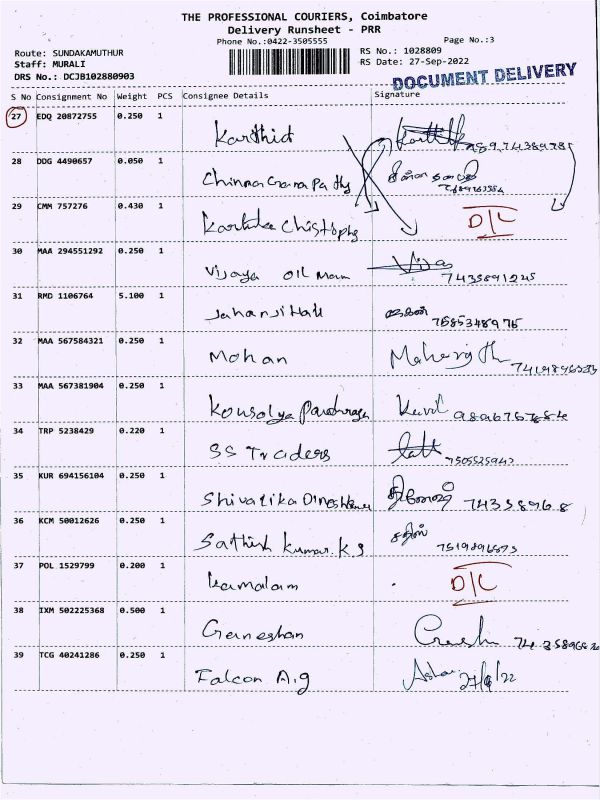 THE PROFESSIONAL COURIERS, Coimbatore
Delivery Runsheet - PRR
Phone No.:0422-3505555 Page No.:3
Route: SUNDAKAMUTHUR RS No.: 1028809
Staff: MURALI RS Date: 27-Sep-2022
DRS No.: DCJB102880903
DOCUMENT DELIVERY
S No Consignment No Weight PCS Consignee Details Signature
27 EDQ 20872755 0.250 1
Karthick
28 DDG 4490657 0.050 1
29 CMM 757276 0.430 1
D/L
30 MAA 294551292 0.250 1
Vijaya Oil Mam Vijay
7435891245
31 RMD 1106764 5.100 1
7585348975
32 MAA 567584321 0.250 1
Mohan
33 MAA 567381904 0.250 1
Kousalya
34 TRP 5238429 0.220 1
SS Traders
35 KUR 694156104 0.250 1
Shivatika
36 KCM 50012626 0.250 1
Sathish Kumar. K.S
37 POL 1529799 0.200 1
Kamalam D/L
38 IXM 502225368 0.500 1
Ganeshan
39 TCG 40241286 0.250 1
Falcon A.g 27/9/22